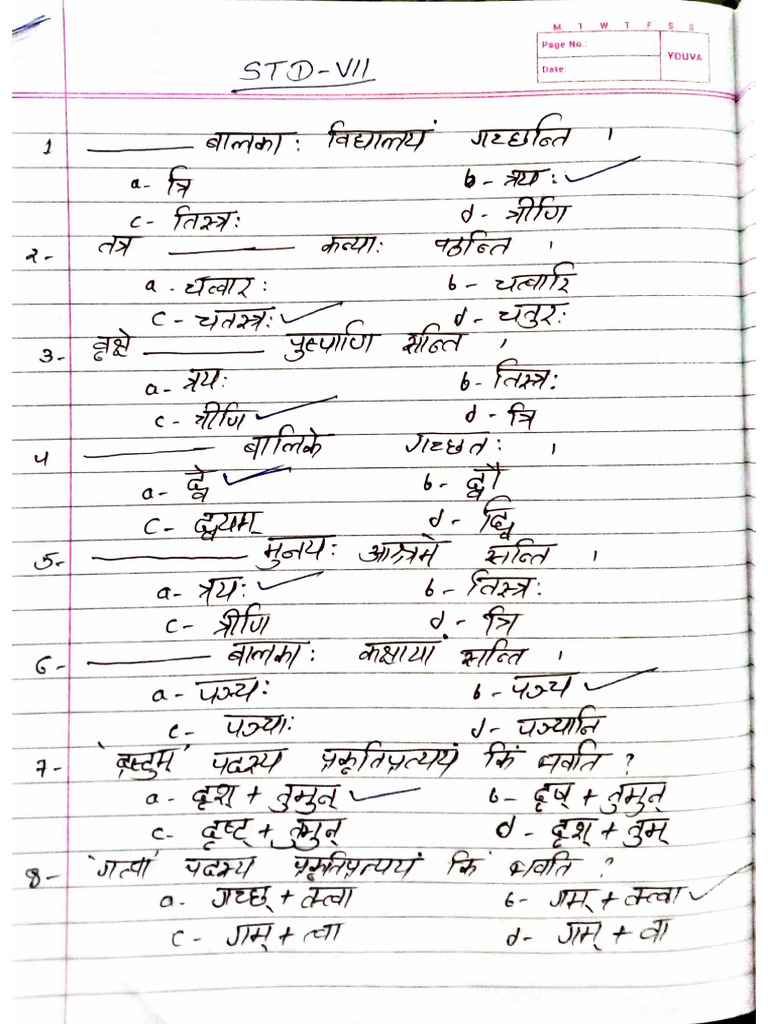 M T W T F S S
Page No.:
YOUVA
Date:
STD-VII
1 ______ बालकाः विद्यालयं गच्छन्ति ।
a- त्रि b- त्रयः ✓
c- तिस्त्रः d- त्रीणि
2- तत्र ______ कन्याः पठन्ति ।
a- चत्वारः b- चत्वारि
c- चतस्त्रः ✓ d- चतुरः
3- वृक्षे ______ पुष्पाणि सन्ति ।
a- त्रयः b- तिस्त्रः
c- त्रीणि ✓ d- त्रि
4 ______ बालिके गच्छतः ।
a- द्वे ✓ b- द्वौ
c- द्वयम् d- द्वि
5- ______ मुनयः आश्रमे सन्ति ।
a- त्रयः ✓ b- तिस्त्रः
c- त्रीणि d- त्रि
6- ______ बालकाः कक्षायां सन्ति ।
a- पञ्चः b- पञ्च ✓
c- पञ्चाः d- पञ्चानि
7- 'द्रष्टुम्' पदस्य प्रकृतिप्रत्ययं किं भवति ?
a- दृश् + तुमुन् ✓ b- दृष् + तुमुन्
c- दृष्ट् + तुमुन् d- दृश् + तुम्
8- 'गत्वा' पदस्य प्रकृतिप्रत्ययं किं भवति ?
a- गच्छ् + क्त्वा b- गम् + क्त्वा ✓
c- गम् + त्वा d- गम् + वा